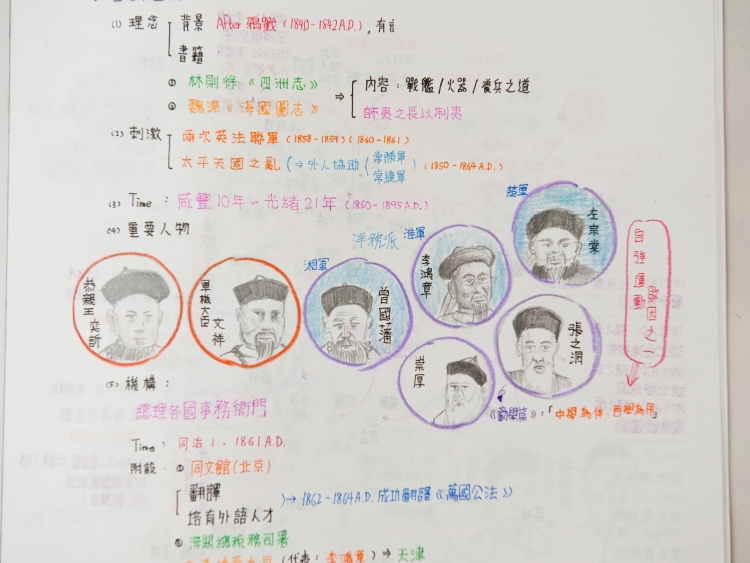 (1) 理念 背景 After 鴉戰 (1840-1842 A.D.), 有言
書籍
① 林則徐《四洲志》
② 魏源《海國圖志》
⇒ 內容：戰艦/火器/養兵之道
師夷之長以制夷
(2) 刺激 兩次英法聯軍 (1858-1859) (1860-1861)
太平天國之亂 (⇒外人協助 常勝軍 常捷軍 (1850-1864 A.D.)
(3) Time : 咸豐10年~光緒21年 (1860-1895 A.D.)
(4) 重要人物
洋務派
恭親王 奕訢
軍機大臣 文祥
湘軍
曾國藩
淮軍
李鴻章
陸軍
左宗棠
崇厚
張之洞
自強運動
《勸學篇》：「中學為体，西學為用」
(5) 機構：
總理各國事務衙門
Time : 同治1，1861 A.D.
附設：① 同文館(北京)
翻譯
培育外語人才
→ 1862-1864 A.D. 成功翻譯《萬國公法》
② 海關總稅務司署
(代表：李鴻章) ⇒ 天津